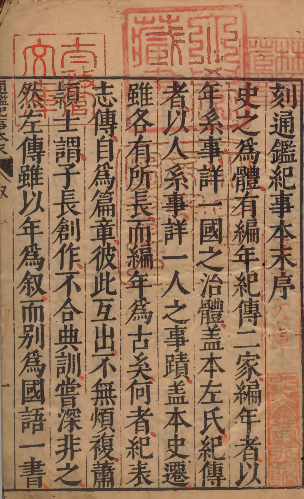 刻通鑑紀事本末序
史之為體有編年紀傳二家編年者以
年系事詳一國之治體盖本左氏紀傳
者以人系事詳一人之事蹟盖本史遷
雖各有所長而編年為古矣何者紀表
志傳自為篇章彼此互出不無煩複蕭
頴士謂子長創作不合典訓嘗深非之
然左傳雖以年為叙而别為國語一書